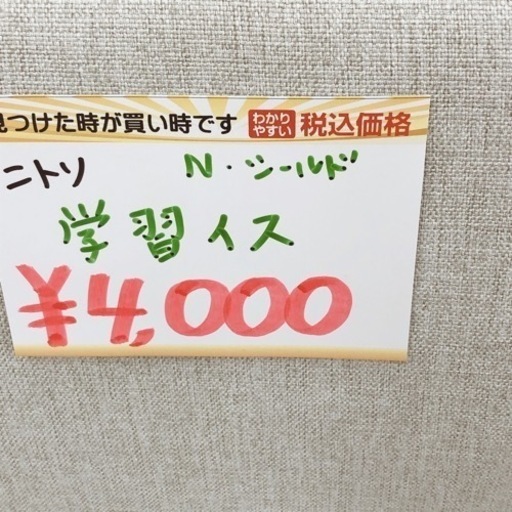 見つけた時が買い時です わかりやすい 税込価格
ニトリ N・シールド
学習イス
¥4,000